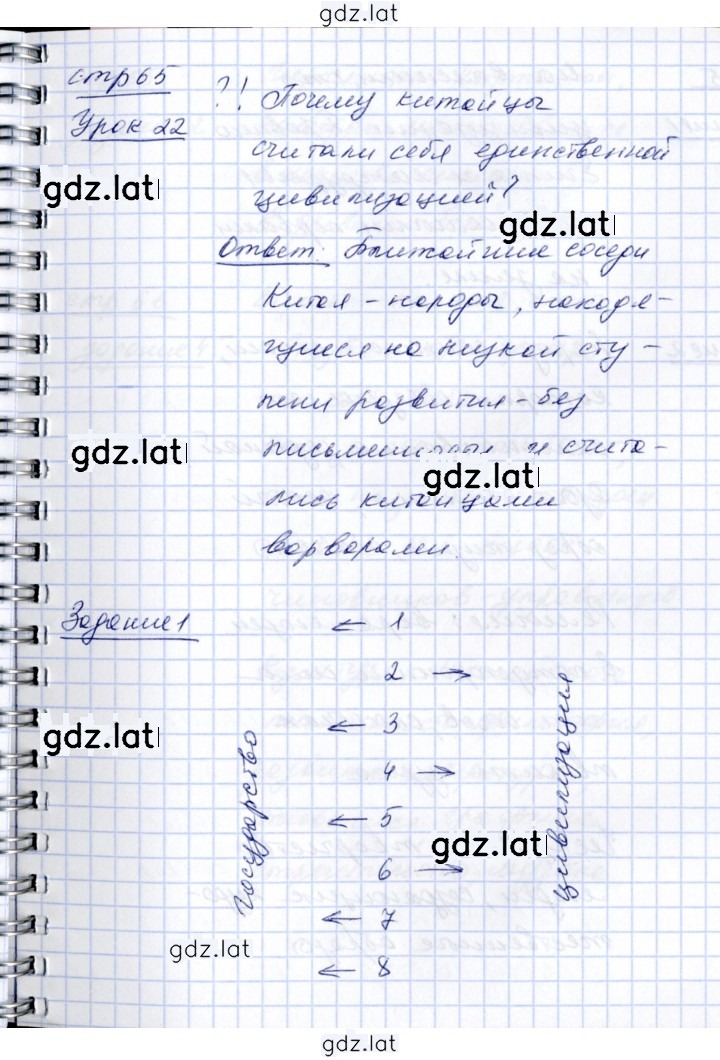 gdz.lat
стр 65
Урок 22
?! Почему китайцы
считали себя единственной
цивилизацией?
gdz.lat
gdz.lat
Ответ: Ближайшие соседи
Китая - народы, находя-
щиеся на низкой сту-
пени развития - без
письменности и счита-
gdz.lat
gdz.lat
лись китайцами
варварами.
Задание 1
← 1
2 →
← 3
4 →
← 5
6 →
← 7
← 8
государство
цивилизация
gdz.lat
gdz.lat
gdz.lat
gdz.lat